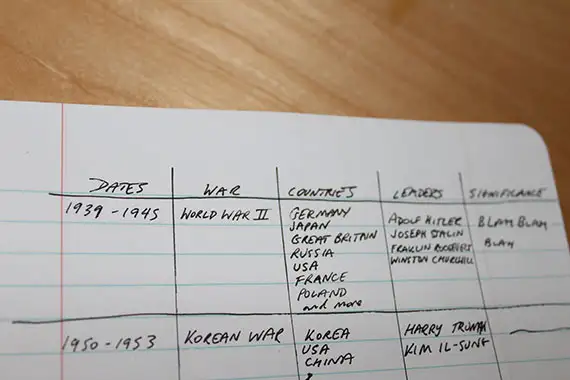 DATES WAR COUNTRIES LEADERS SIGNIFICANCE
1939-1945 WORLD WAR II GERMANY ADOLF HITLER BLAH BLAH
JAPAN JOSEPH STALIN BLAH
GREAT BRITAIN FRAKLIN ROOSEVELT
RUSSIA WINSTON CHURCHILL
USA
FRANCE
POLAND
and more
1950-1953 KOREAN WAR KOREA HARRY TRUMAN
USA KIM IL-SUNG
CHINA